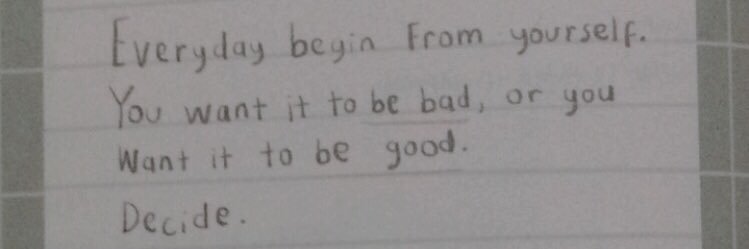 Everyday begin From yourself.
You want it to be bad, or you
Want it to be good.
Decide.